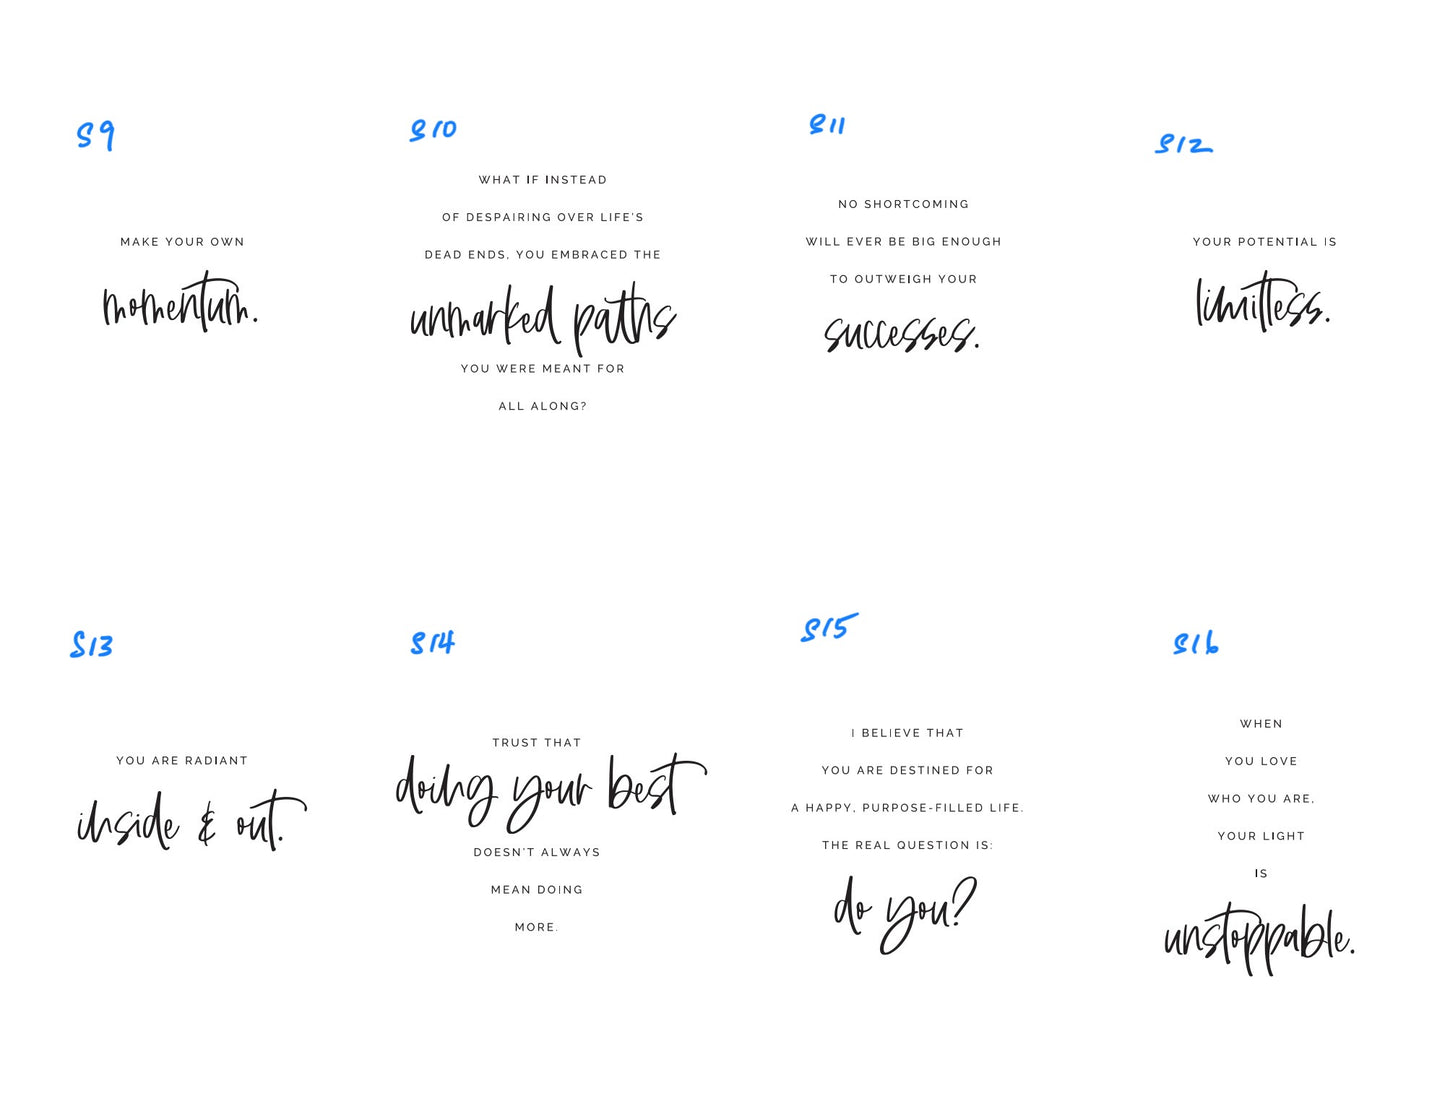 S9
MAKE YOUR OWN
momentum.
S10
WHAT IF INSTEAD
OF DESPAIRING OVER LIFE'S
DEAD ENDS, YOU EMBRACED THE
unmarked paths
YOU WERE MEANT FOR
ALL ALONG?
S11
NO SHORTCOMING
WILL EVER BE BIG ENOUGH
TO OUTWEIGH YOUR
successes.
S12
YOUR POTENTIAL IS
limitless.
S13
YOU ARE RADIANT
inside & out.
S14
TRUST THAT
doing your best
DOESN'T ALWAYS
MEAN DOING
MORE.
S15
I BELIEVE THAT
YOU ARE DESTINED FOR
A HAPPY, PURPOSE-FILLED LIFE.
THE REAL QUESTION IS:
do you?
S16
WHEN
YOU LOVE
WHO YOU ARE,
YOUR LIGHT
IS
unstoppable.